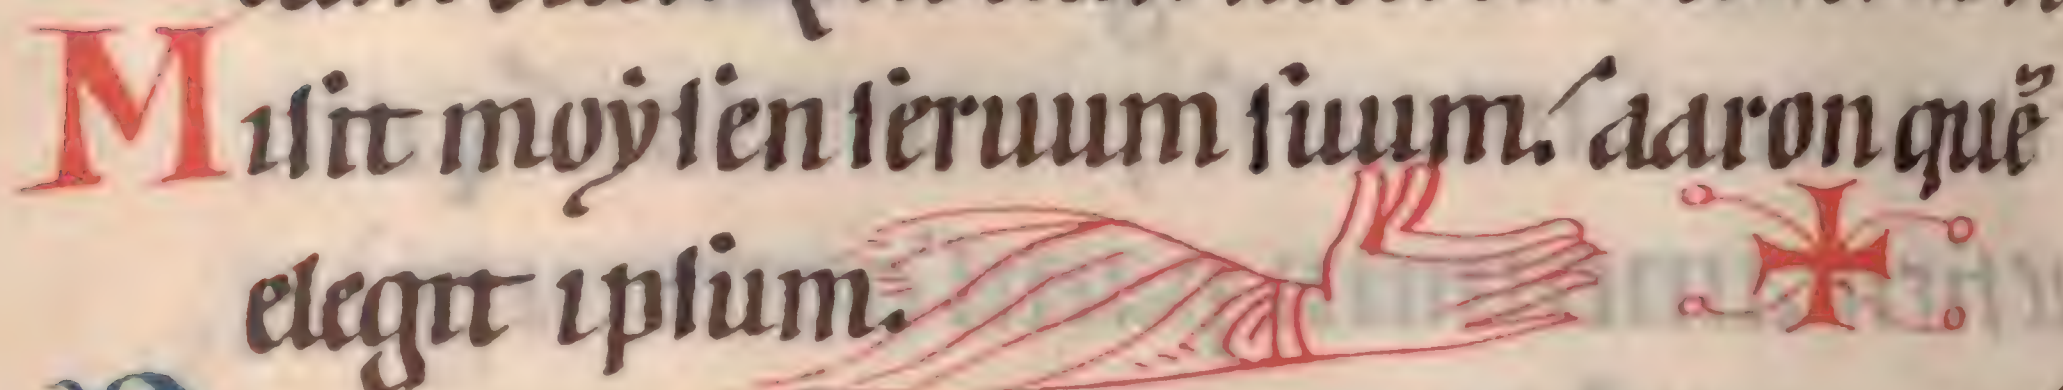 Misit moẏsen seruum suum. aaron quē
elegit ipsum.